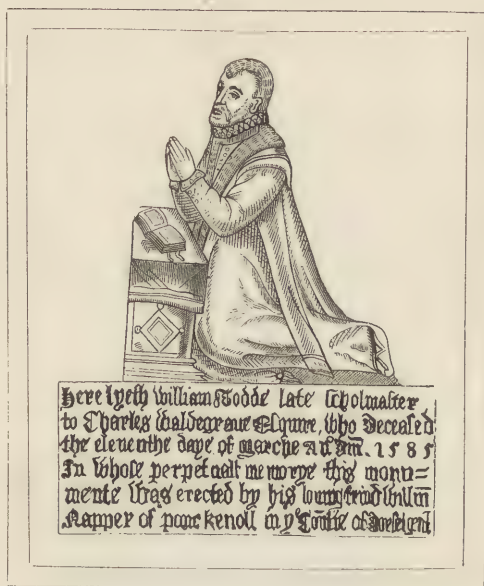 Here lyeth William late scholmaster
to Charles Waldegraue Esquire, who Deceased
the eleuenthe daye of Marche An° dm̄. 1585
In whose perpetuall memorye this monu=
mente was erected by his louing frind Willm̄
Napper of in yᵉ of Dorset gent